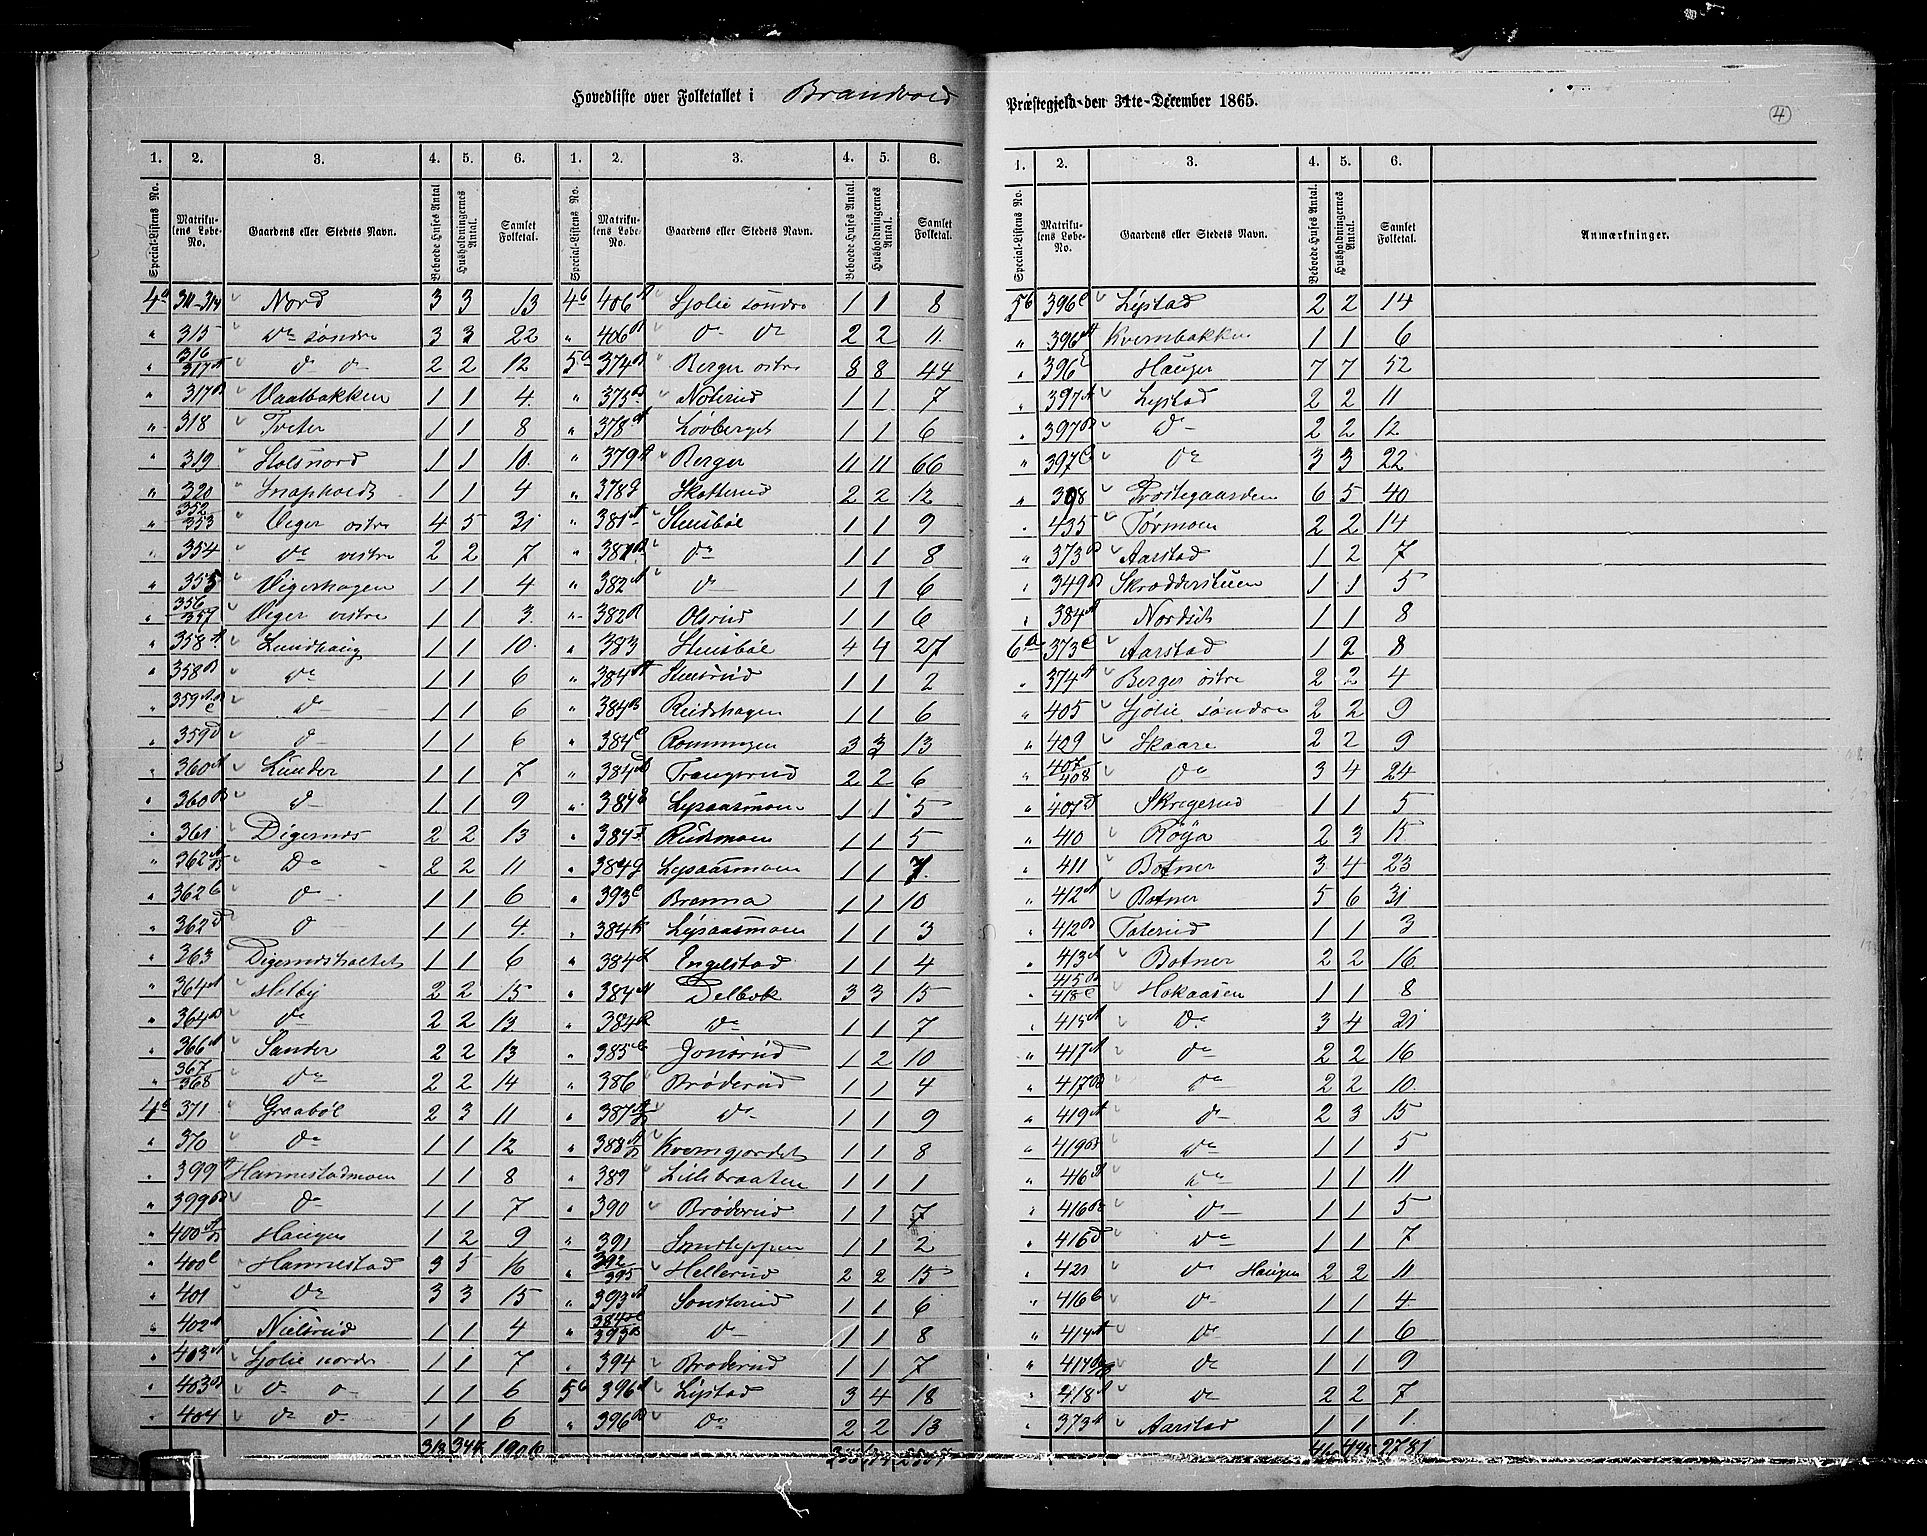 Hovedliste over Folketallet i Brandvold Præstegjeld den 31te December 1865.
4
1. 2. 3. 4. 5. 6. 1. 2. 3. 4. 5. 6.
Special-Listens No. Matrikulens Løbe-No. Gaardens eller Stedets Navn. Beboede Huses Antal Husholdningernes Antal. Samlet Folketal. Special-Listens No. Matrikulens Løbe-No. Gaardens eller Stedets Navn. Beboede Huses Antal. Husholdningernes Antal. Samlet Folketal.
4a 311-314 Nord 3 3 13 4b 406A Sjolie søndre 1 1 8
" 315 Do søndre 3 3 22 " 406B Do Do 2 2 11
" 316/317A Do Do 2 2 12 5a 374B Berger østre 8 8 44
" 317B Vaalbakken 1 1 4 " 375B Noterud 1 1 7
" 318 Tveter 1 1 8 " 378A Løvberget 1 1 6
" 319 Stolsnord 1 1 10 " 379A Berger 11 11 66
" 320 1 1 4 " 378 Skotterud 2 2 12
" 352/353 Viger østre 4 5 31 " 381A Stensbøl 1 1 9
" 354 Do vestre 2 2 7 " 381B Do 1 1 8
" 355 Vigerhagen 1 1 4 " 382A Do 1 1 6
" 356/357 Viger vestre 1 1 3 " 382B Olsrud 1 1 6
" 358A Lundhaug 1 1 10 " 383 Stensbøl 4 4 27
" 358B Do 1 1 6 " 384A Stensrud 1 1 2
" 359 Do 1 1 6 " 384B Reidshagen 1 1 6
" 359D Do 1 1 6 " 384C Romningen 3 3 13
" 360A Lunder 1 1 7 " 384D Trangsrud 2 2 6
" 360B Do 1 1 9 " 384E Lysaasmoen 1 1 5
" 361 Digernæs 2 2 13 " 384F Rudsmoen 1 1 5
" 362 Do 2 2 11 " 384G Lysaasmoen 1 1 7
" 362C Do 1 1 6 " 393C Brænna 1 1 10
" 362D Do 1 1 4 " 384K Lysaasmoen 1 1 3
" 363 Digernæsholtet 1 1 6 " 384L Engelstad 1 1 4
" 364A Melby 2 2 15 " 384M Delbæk 3 3 15
" 364B Do 2 2 13 " 384 Do 1 1 7
" 366A Sander 2 2 13 " 385 Jonsrud 1 2 10
" 367/368 Do 2 2 14 " 386 Brøderud 1 1 4
4b 371 Graabøl 2 3 11 " 387 Do 1 1 9
" 370 Do 1 1 12 " 388 Kverngjordet 1 1 8
" 399A Harmestadmoen 1 1 8 " 389 Lillebraaten 1 1 1
" 399B Do 1 1 7 " 390 Brøderud 1 1 7
" 400 Haugen 1 2 9 " 391 1 1 2
" 400C Harmestad 3 5 16 " 392/395 Hellerud 2 2 15
" 401 Do 3 3 15 " 393A Sønsterud 1 1 6
" 402A Nielsrud 1 1 4 " 393B Do 1 1 8
" 403A Sjolie nordre 1 1 7 " 394 Brøderud 1 1 7
" 403B Do Do 1 1 6 5b 396A Lystad 3 4 18
" 404 Do Do 1 1 6 " 396B Do 2 2 13
313 344 1906
1. 2. 3. 4. 5. 6.
Special-Listens No. Matrikulens Løbe-No. Gaardens eller Stedets Navn. Beboede Huses Antal. Husholdningernes Antal. Samlet Folketal. Anmærkninger.
5b 396C Lystad 2 2 14
" 396 Kvernbakken 1 1 6
" 396E Hauger 7 7 52
" 397A Lystad 2 2 11
" 397B Do 2 2 12
" 397C Do 3 3 22
" 398 Præstegaarden 6 5 40
" 435 Tørmoen 2 2 14
" 373B Aarstad 1 2 7
" 349B Skrædderstuen 1 1 5
" 384 Nordset 1 1 8
6a 373C Aarstad 1 2 8
" 374A Berger østre 2 2 4
" 405 Sjolie søndre 2 2 9
" 409 Skaare 2 2 9
" 407/408 Do 3 4 24
" 407 Skregerud 1 1 5
" 410 Røya 2 3 15
" 411 Botner 3 4 23
" 412A Botner 5 6 31
" 412B Taterud 1 1 3
" 413A Botner 2 2 16
" 415B/418C Hokaasen 1 1 8
" 415A Do 3 4 21
" 417A Do 2 2 16
" 417B Do 2 2 10
" 419A Do 2 3 15
" 419B Do 1 1 5
" 416A Do 1 1 11
" 416B Do 1 1 5
" 416D Do 1 1 7
" 421 Do Haugen 2 2 11
" 416C Do 1 1 4
" 414A Do 1 1 6
" 414B Do 1 1 9
" 418A Do 2 2 7
" 373A Aarstad 1 1 1
495 2781